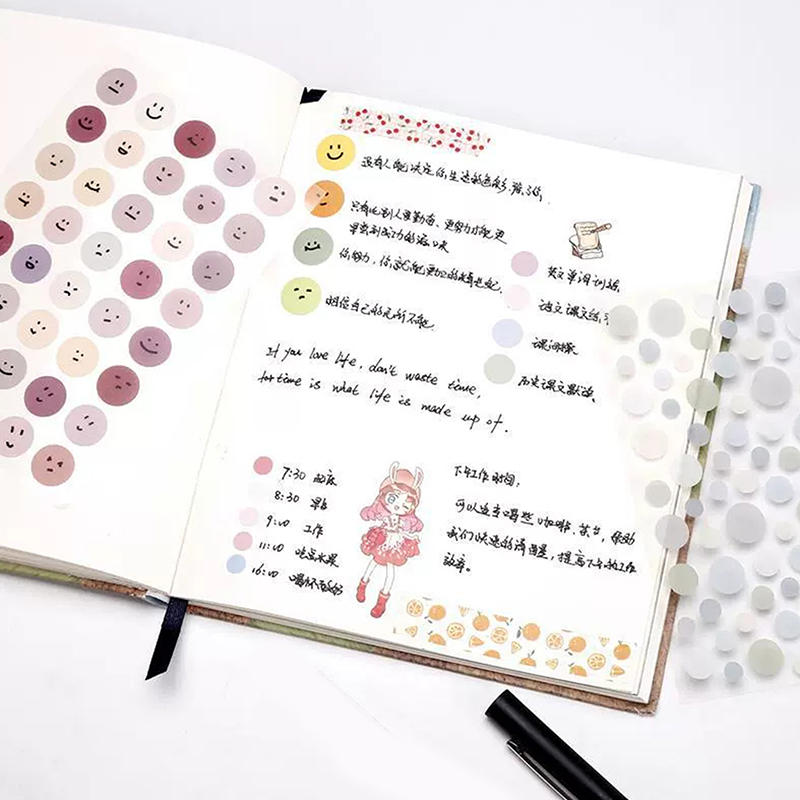 没有人能决定你生活的色彩
只有比别人更勤奋、更努力才能更
早尝到成功的滋味
你努力,你就能更
相信自己的无所不能
英文单词训练
语文课文
历史课文默读
If you love life, don't waste time,
for time is what life is made up of.
7:30 起床
8:30 早
9:00 工作
11:00 吃点水果
16:00 喝杯
下午工作时间,
可以适当喝些咖啡、茶水,帮助
我们快速的清醒,提高下午的工作
效率。